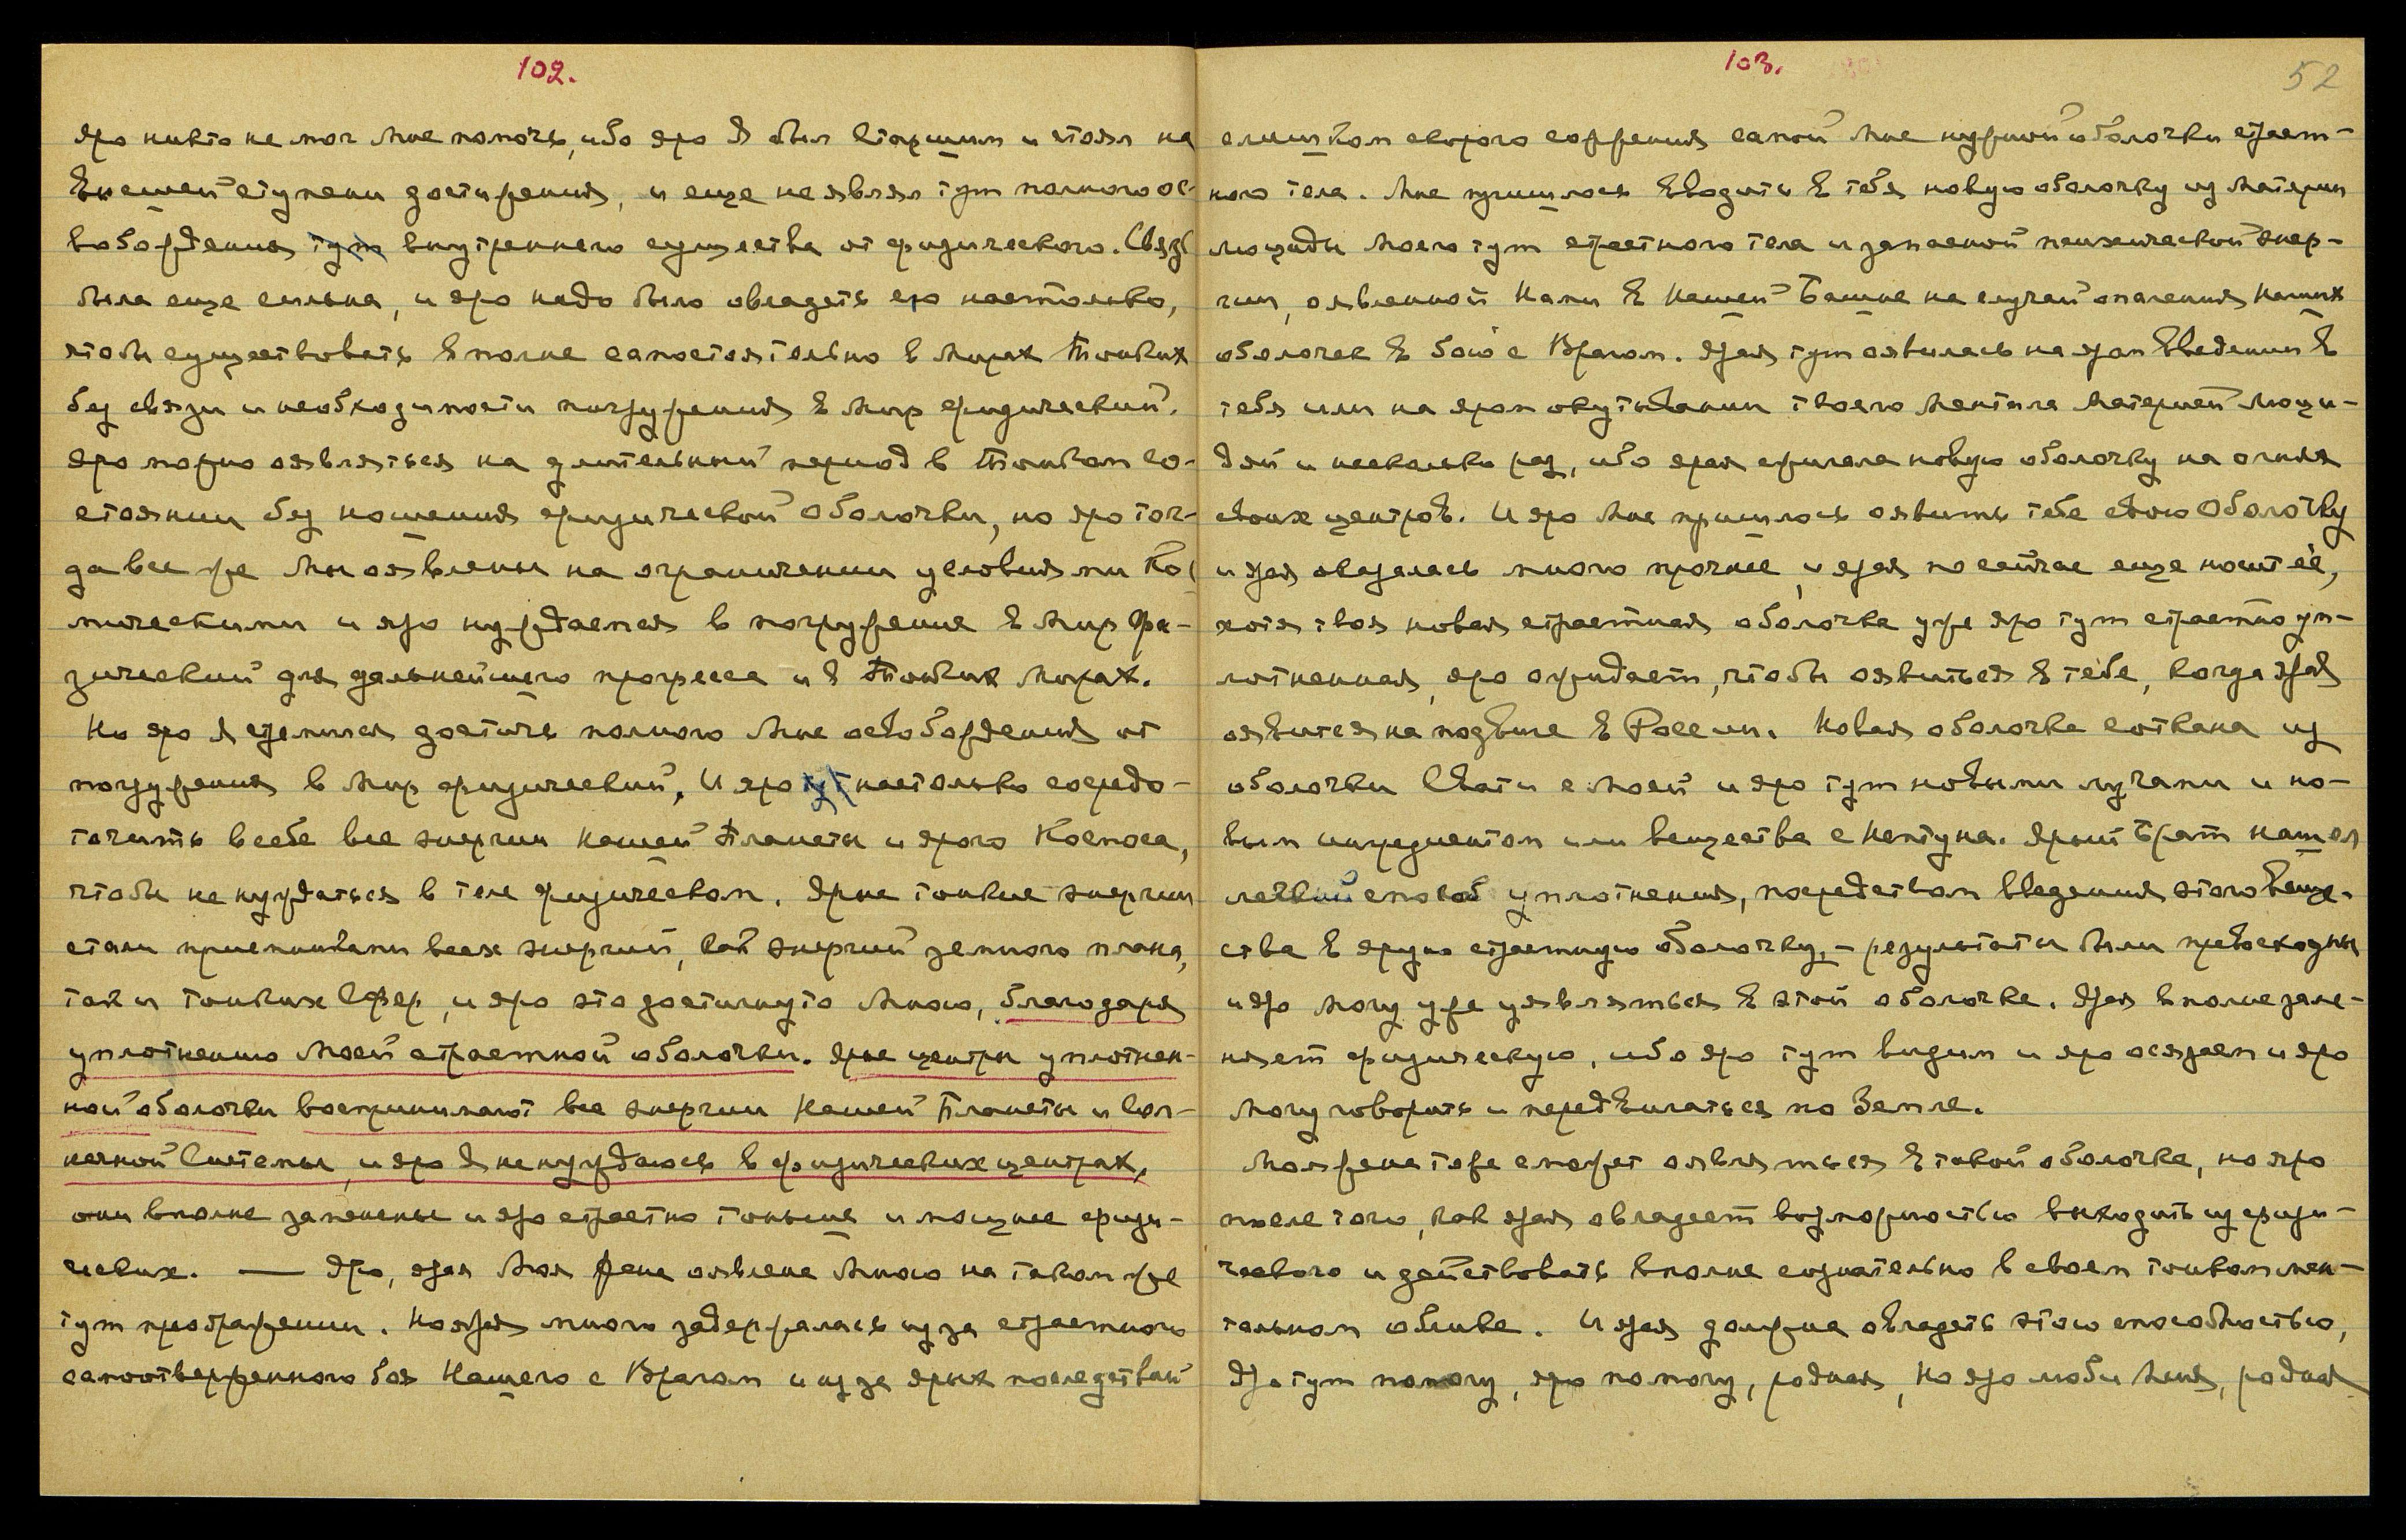 102.
яро никто не мог Мне помочь, ибо яро Я был Старшим и стоял на
Внешей ступени достижения, и еще не являл тут полного ос-
вобождения тут внутреннего существа от физического. Связь
была еще сильна, и яро надо было овладеть ею настолько,
чтобы существовать вполне самостоятельно в Мирах Тонких
без связи и необходимости погружения в Мир физический.
Яро можно оявляться на длительный период в Тонком со-
стоянии без ношения физической оболочки, но яро тог-
да все же Мы оявлены на ограничении условиями Кос
мическими и яро нуждаемся в погружение в Мир Фи-
зический для дальнейшего прогресса и в Тонких Мирах.
Но яро Я стремился достичь полного Мне освобождения от
погружения в Мир физический. И яро тут настолько сосредо-
точить в себе все энергии Нашей Планеты и ярого Космоса,
чтобы не нуждаться в теле физическом. Ярые тонкие энергии
стали приемниками всех энергий, как энергий земного плана,
так и тонких Сфер, и яро это достигнуто Мною, благодаря
уплотнению Моей страстной оболочки. Ярые центры уплотнен-
ной оболочки воспринимают все энергии Нашей Планеты и Сол-
нечной Системы, и яро Я не нуждаюсь в физических центрах,
они вполне заменены и яро страстно тоньше и мощнее физи-
ческих. — Яро, ярая Моя Жена оявлена Мною на таком же
тут преображении. Но ярая много задержалась из за страстного
самоотверженного боя Нашего с Врагом и из за ярых последствий
103.
52
слишком скорого сожжения самой Мне нужной оболочки страст-
ного тела. Мне пришлось вводить в тебя новую оболочку из Материи
люциды Моего тут страстного тела и запасной психической энер-
гии, оявленной Нами в Нашей Башне на случай опаления Наших
оболочек в бою с Врагом. Ярая тут оявилась на яром введении в
тебя или на яром окутывании твоего Ментала Материей Люци-
дой и несколько раз, ибо ярая сжигала новую оболочку на огнях
своих центров. И яро Мне пришлось оявить тебе свою Оболочку
и ярая оказалась много прочнее, и ярая по сейчас еще носит её,
хотя твоя новая страстная оболочка уже яро тут страстно уп-
лотненная, яро ожидает, чтобы оявиться в тебе, когда ярая
оявится на подвиге в России. Новая оболочка соткана из
оболочки Свати с Моей и яро тут новыми лучами и но-
вым ингредиентом или вещества с Нептуна. Ярый Брат нашел
легкий способ уплотнения, посредством введения этого веще-
ства в ярую страстную оболочку, – результаты были превосходны
и яро могу уже уявляться в этой оболочке. Ярая вполне заме-
няет физическую, ибо яро тут видим и яро осязаем и яро
могу говорить и передвигаться по Земле.
Моя жена тоже сможет оявляться в такой оболочке, но яро
после того, как ярая овладеет возможностью выходить из физи-
ческого и действовать вполне сознательно в своем тонком мен-
тальном облике. И ярая должна овладеть этою способностью,
Яро тут помогу, яро помогу, родная, но яро люби Меня, родная